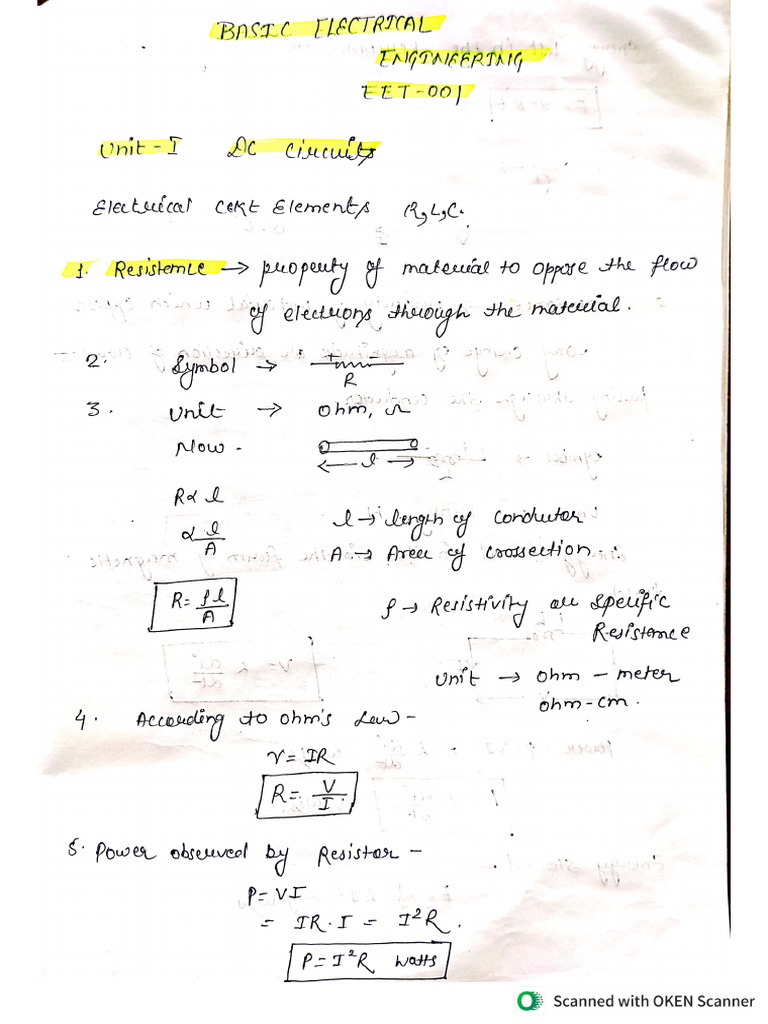 BASIC ELECTRICAL
ENGINEERING
EET-001
Unit-I DC Circuits
Electrical Cckt Elements R,L,C.
1. Resistence → property of material to oppose the flow
of electrons through the material.
2. Symbol →
+
R
3. Unit → ohm, Ω
Now -
← l →
R∝ l
∝ l/A
l → length of conductor
A → Area of crossection
R= ρl/A
ρ → Resistivity or Specific
Resistence
Unit → ohm - meter
ohm-cm.
4. According to ohm's Law -
V=IR
R= V/I
5. Power observed by Resistor -
P=VI
= IR·I = I²R.
P=I²R watts
Scanned with OKEN Scanner